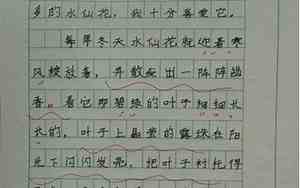 多的水仙花，我十分喜爱它。
每年冬天水仙花就迎着寒
风绽放着，并散发出一阵阵幽
香。看它那碧绿的叶子细细长
长的，叶子上晶莹的露珠在阳
光下闪闪发亮，把叶子衬托得